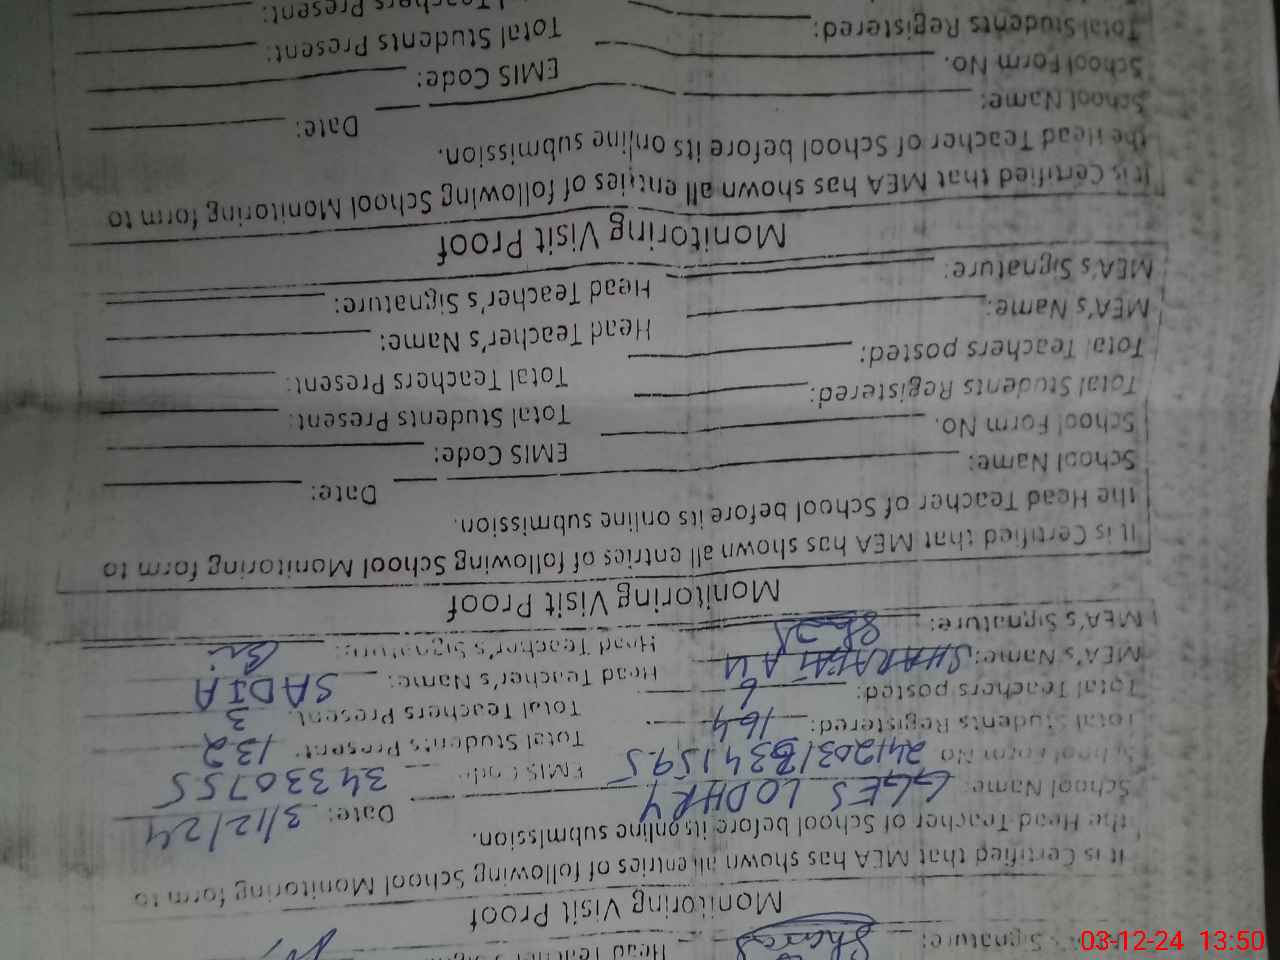 Signature: Head Teacher's
Monitoring Visit Proof
It is Certified that MEA has shown all entries of following School Monitoring form to
the Head Teacher of School before its online submission.
School Name: GGES LODHRY Date: 3/12/24
School Form No EMIS Code 34330755
Total Students Registered: 164 Total Students Present: 132
Total Teachers posted: 6 Total Teachers Present: 3
MEA's Name: Head Teacher's Name: SADIA
MEA's Signature: Head Teacher's Signature:
Monitoring Visit Proof
It is Certified that MEA has shown all entries of following School Monitoring form to
the Head Teacher of School before its online submission.
School Name: Date:
School Form No. EMIS Code:
Total Students Registered: Total Students Present:
Total Teachers posted: Total Teachers Present:
MEA's Name: Head Teacher's Name:
MEA's Signature: Head Teacher's Signature:
Monitoring Visit Proof
It is Certified that MEA has shown all entries of following School Monitoring form to
the Head Teacher of School before its online submission.
School Name: Date:
School Form No. EMIS Code:
Total Students Registered: Total Students Present:
Teachers Present:
03-12-24 13:50